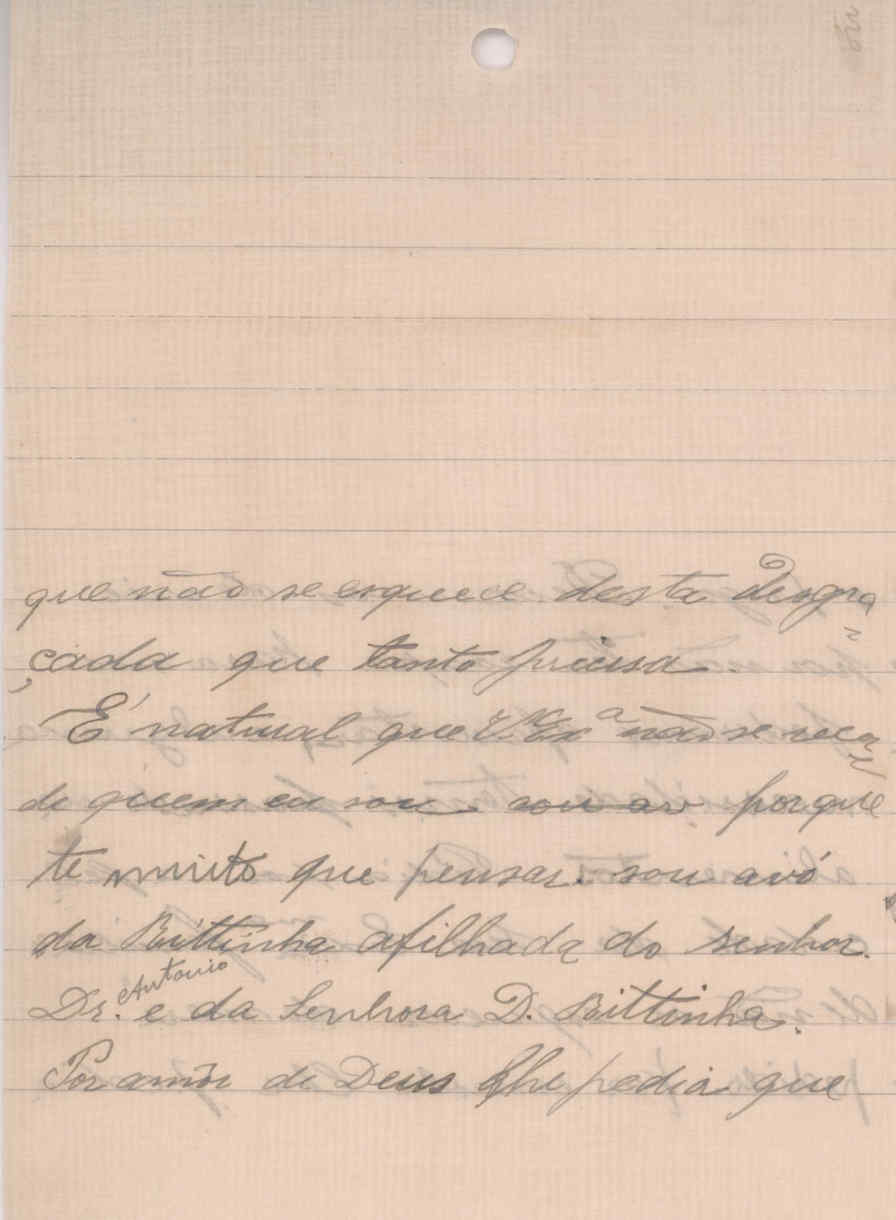 que não se esquece desta desgra
çada que tanto precisa.
É natural que V. Exª não se recor
de quem eu sou sou av porque
te muito que pensar. sou avó
da Bittinha afilhada do senhor.
Dr. Antonio e da Senhora D. Bittinha.
Por amôr de Deus lhe pedia que